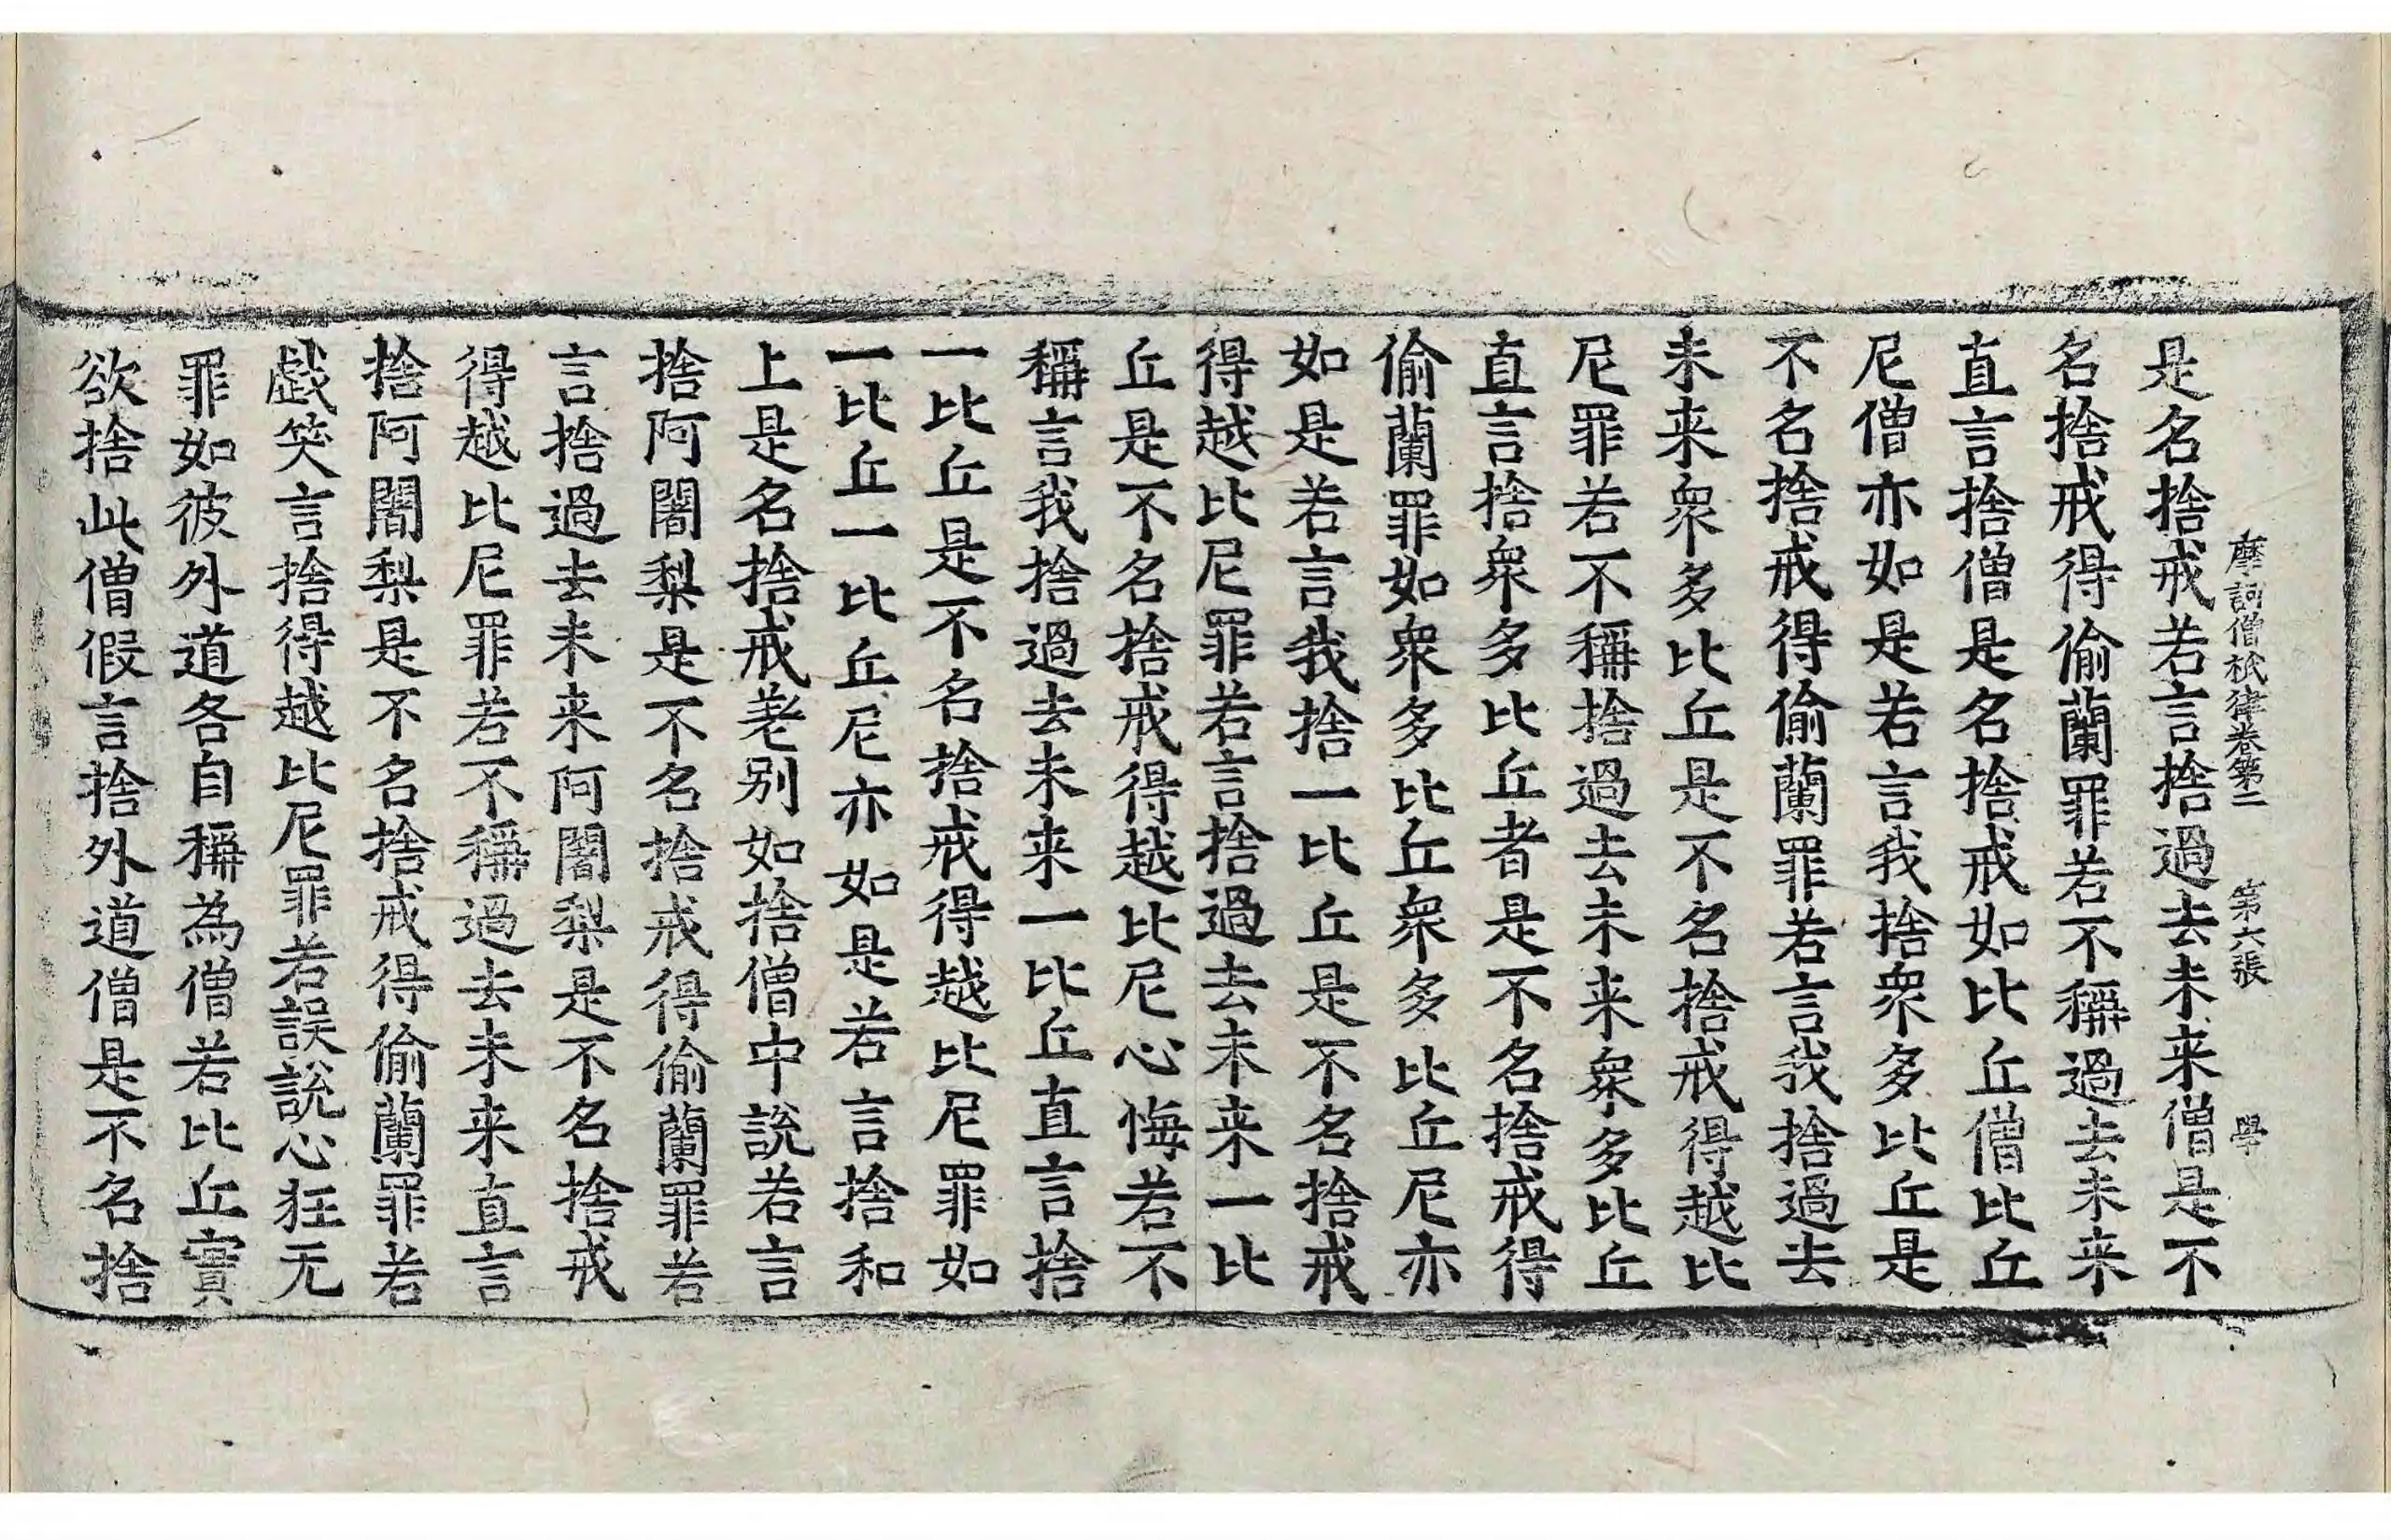 摩訶僧祇律卷第二　第六張　學
是名捨戒若言捨過去未来僧是不
名捨戒得偷蘭罪若不稱過去未来
直言捨僧是名捨戒如比丘僧比丘
尼僧亦如是若言我捨衆多比丘是
不名捨戒得偷蘭罪若言我捨過去
未来衆多比丘是不名捨戒得越比
尼罪若不稱捨過去未来衆多比丘
直言捨衆多比丘者是不名捨戒得
偷蘭罪如衆多比丘衆多比丘尼亦
如是若言我捨一比丘是不名捨戒
得越比尼罪若言捨過去未来一比
丘是不名捨戒得越比尼心悔若不
稱言我捨過去未来一比丘直言捨
一比丘是不名捨戒得越比尼罪如
一比丘一比丘尼亦如是若言捨和
上是名捨戒差别如捨僧中說若言
捨阿闍梨是不名捨戒得偷蘭罪若
言捨過去未来阿闍梨是不名捨戒
得越比尼罪若不稱過去未来直言
捨阿闍梨是不名捨戒得偷蘭罪若
戯笑言捨得越比尼罪若誤說心狂无
罪如彼外道各自稱為僧若比丘實
欲捨此僧假言捨外道僧是不名捨